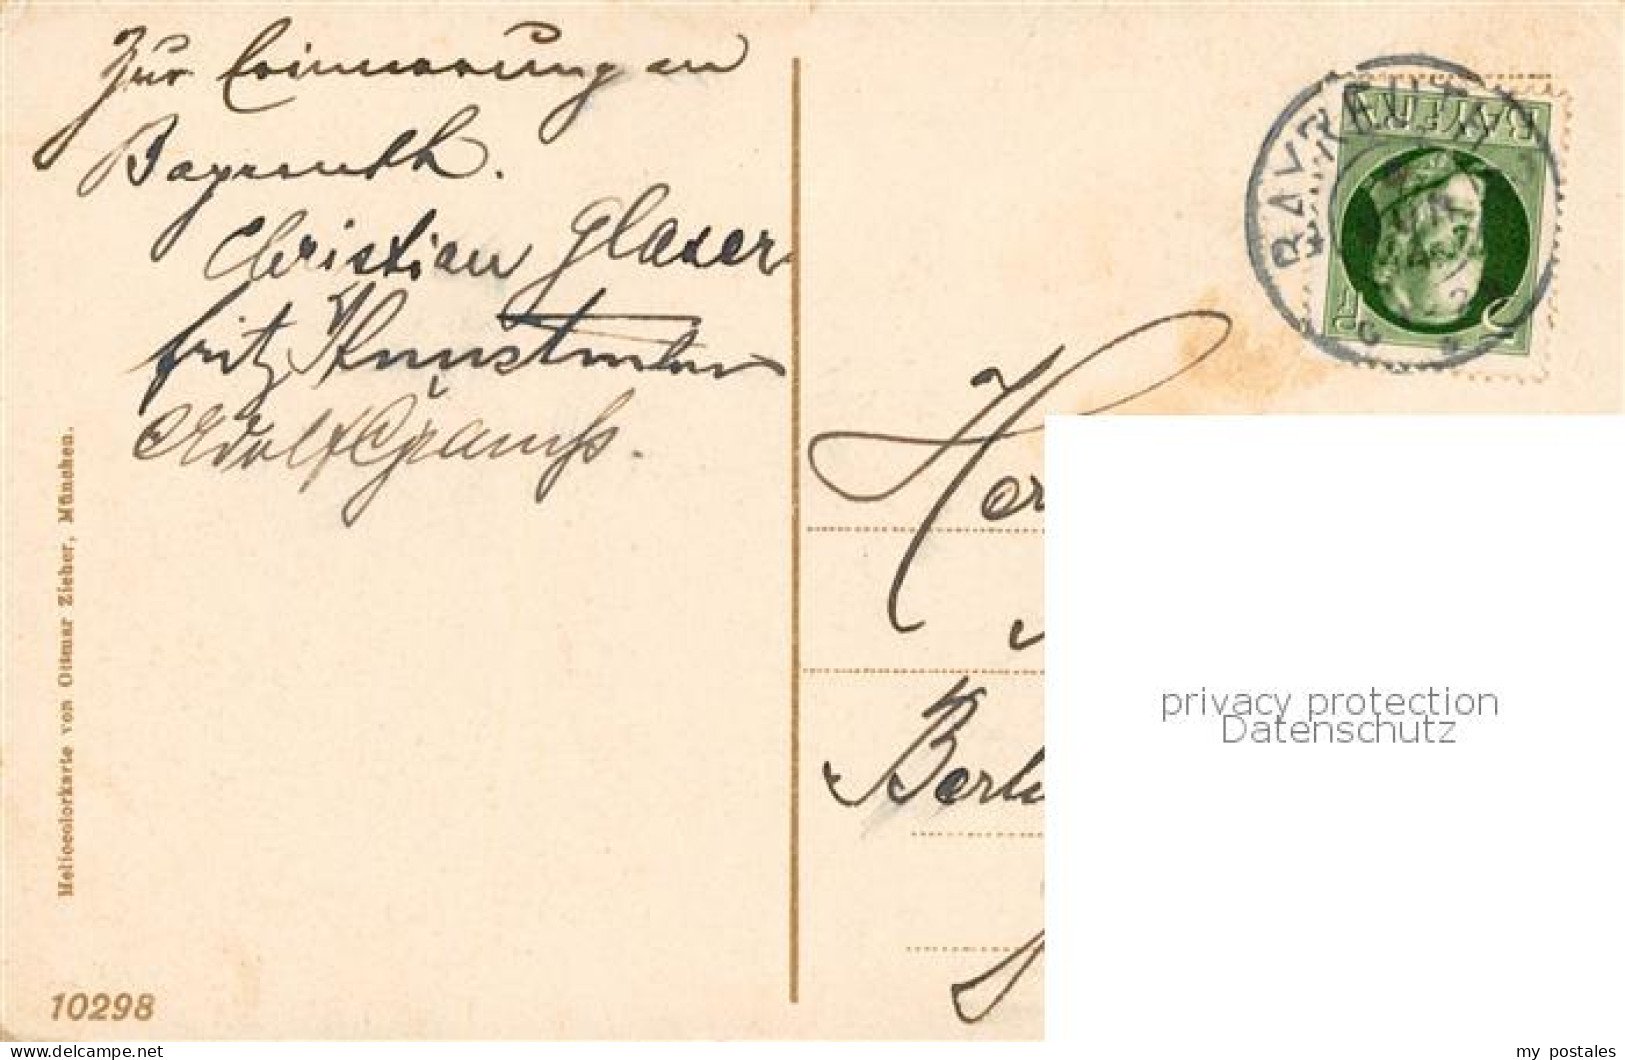 Zur Erinnerung an
Bayreuth.
Christian Glaser
Fritz
Adolf
Heliocolorkarte von Ottmar Zieher, München.
10298
BAYREUTH
BAYERN
5
Her
Berli
privacy protection
Datenschutz
my postales